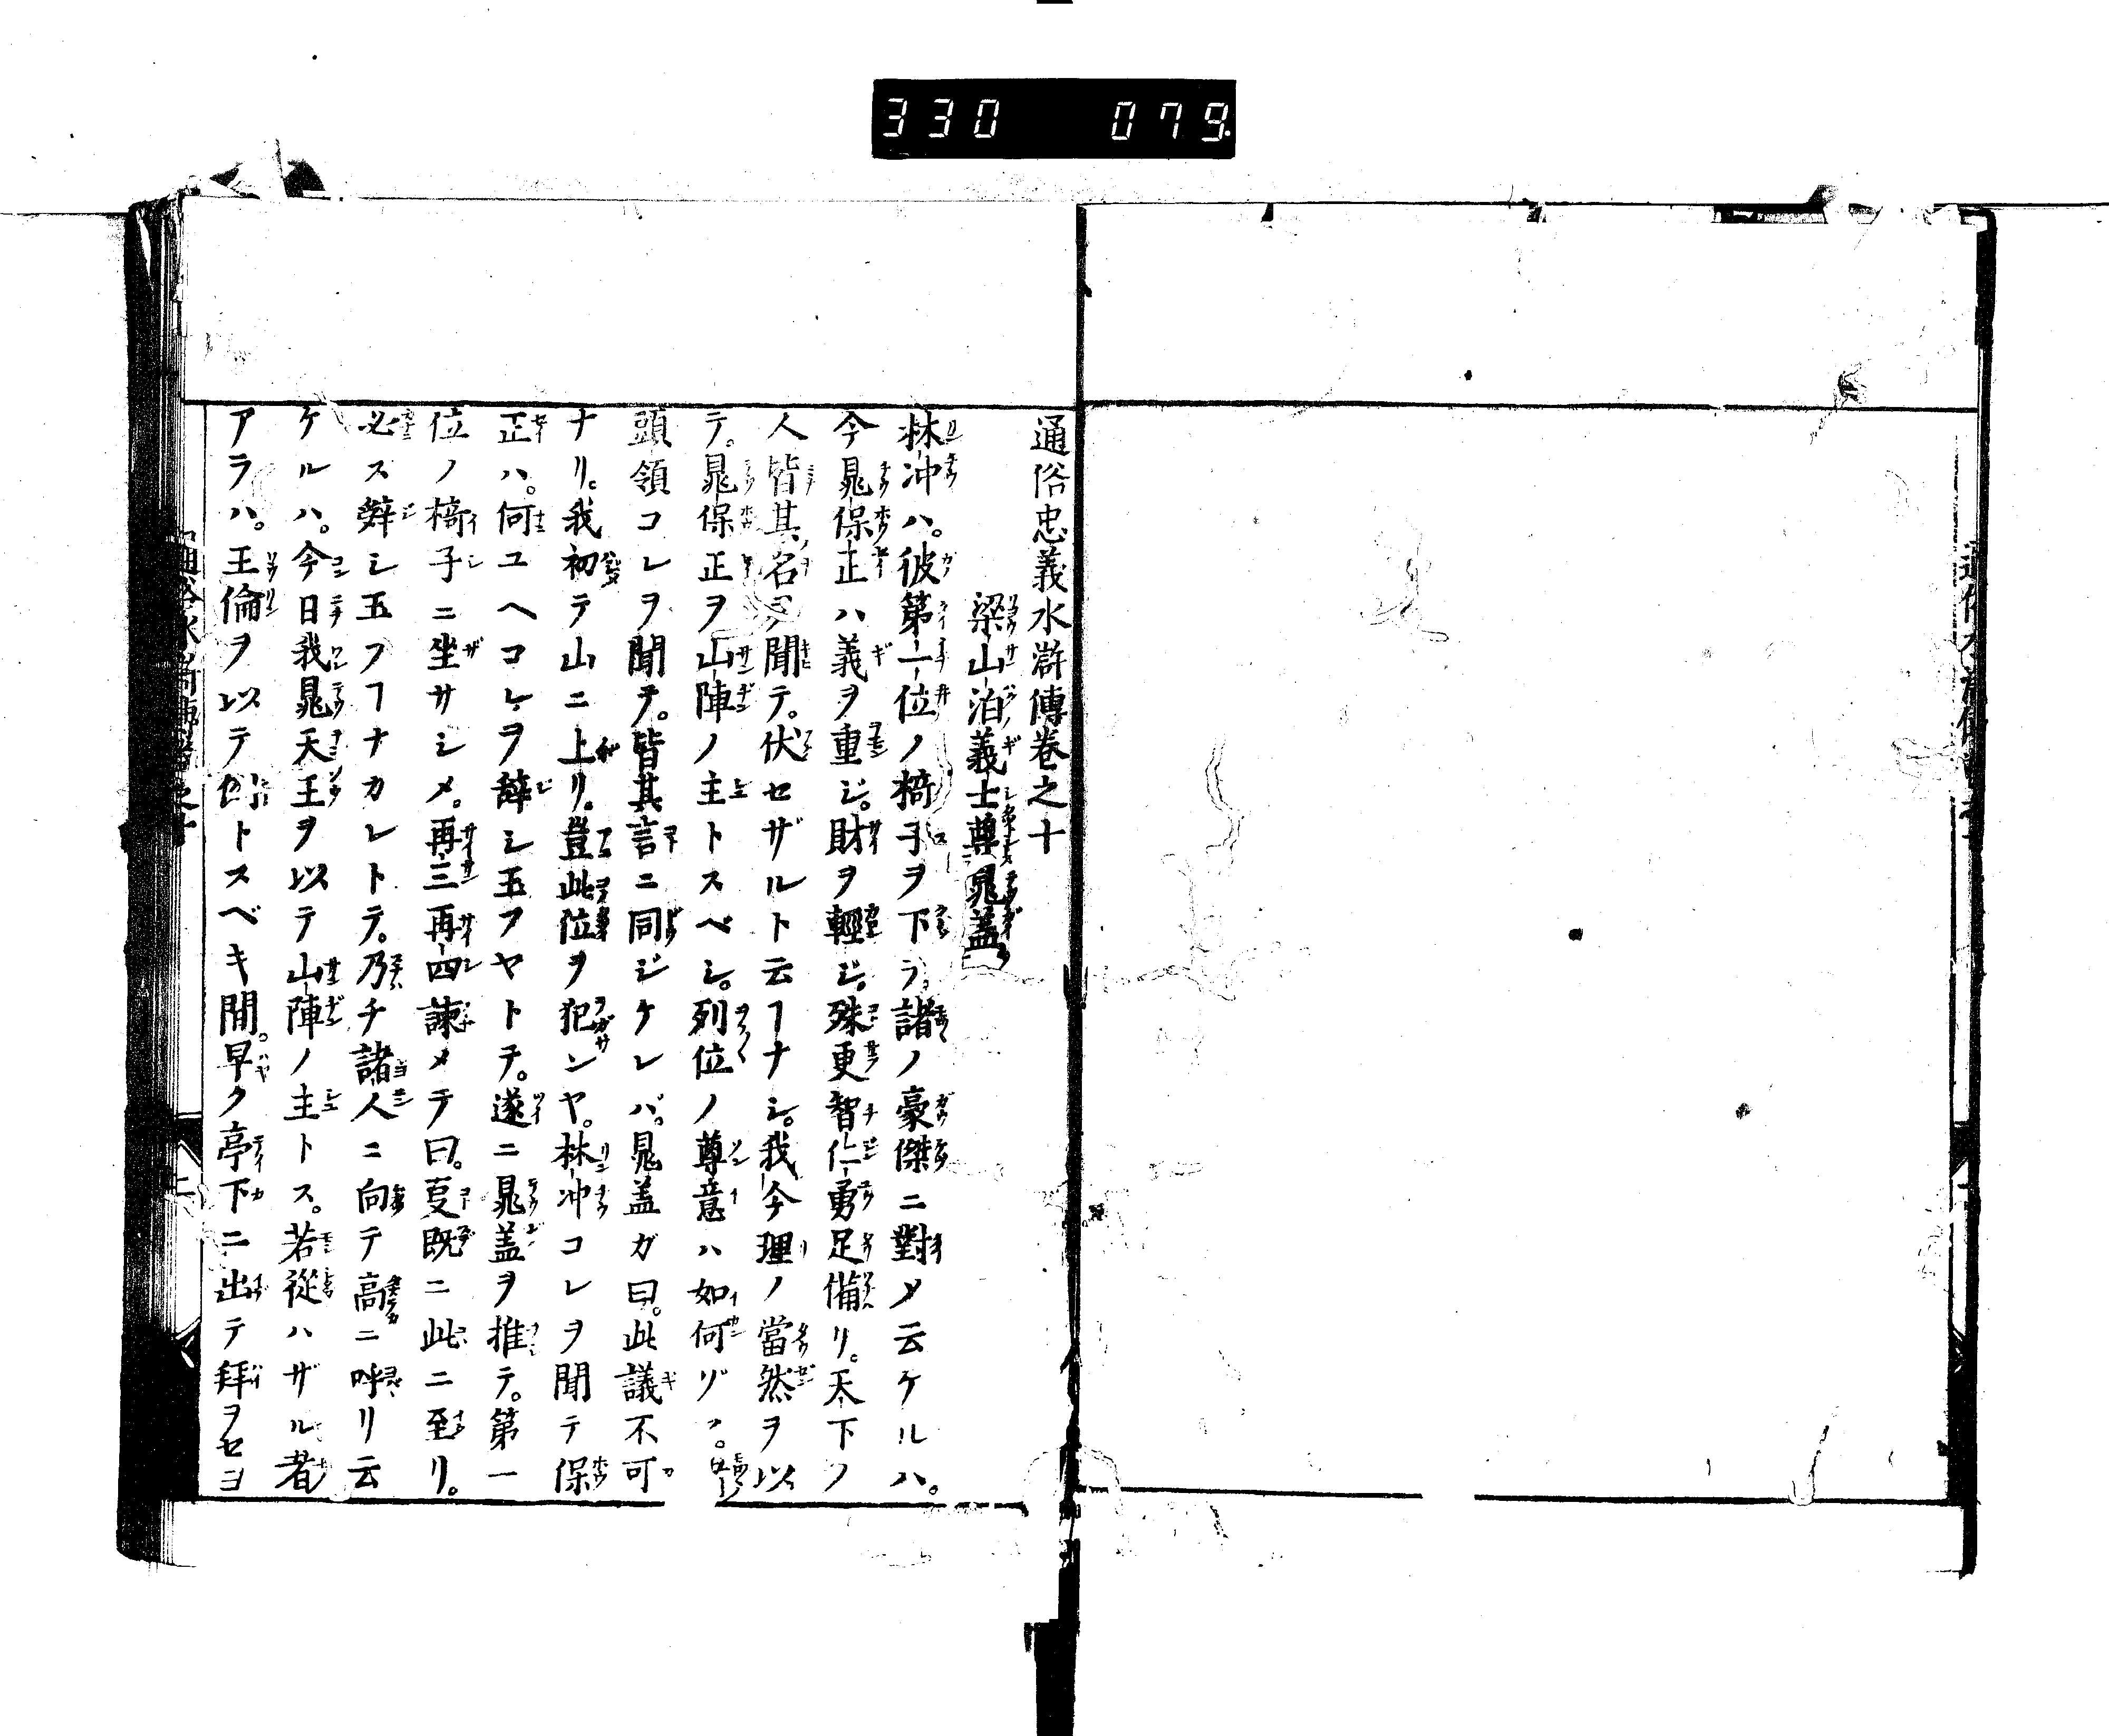 330 079
通俗忠義水滸傳卷之十
梁山泊義士尊晁蓋
林冲ハ。彼第一位ノ椅子ヲ下ラ。諸ノ豪傑ニ對メ云ケルハ。
今晁保正ハ義ヲ重ジ。財ヲ輕ジ。殊更智仁勇足備リ。天下ノ
人皆其名ヲ聞テ。伏セザルト云ヿナシ。我今理ノ當然ヲ以
テ。晁保正ヲ山陣ノ主トスベシ。列位ノ尊意ハ如何ゾヤ。
頭領コレヲ聞テ。皆其言ニ同ジケレバ。晁盖ガ曰。此議不可
ナリ。我初テ山ニ上リ。豈此位ヲ犯ンヤ。林冲コレヲ聞テ保
正ハ。何ユヘコレヲ辭シ玉フヤトテ。遂ニ晁盖ヲ推テ。第一
位ノ椅子ニ坐サシメ。再三再四諫メテ曰。叓既ニ此ニ至リ。
必ス辭シ玉フヿナカレトテ。乃チ諸人ニ向テ高ニ呼リ云
ケルハ。今日我晁天王ヲ以テ山陣ノ主トス。若從ハザル者
アラハ。王倫ヲ以テ例トスベキ間。早ク亭下ニ出テ拜ヲセヨ